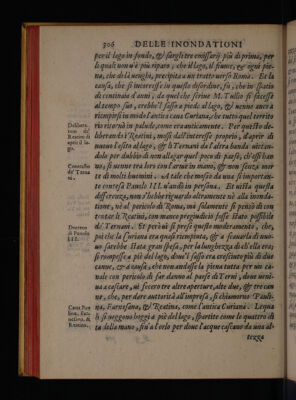 306 DELLE INONDATIONI
per il lago in fondo, & fargli tre emissarij più di prima, per
le quali non v'è più riparo, che il lago, il fiume, & ogni pie-
na, che delà venghi, precipita a un tratto verso Roma. Et la
causa, che si intercesse in questo disordine, fù, che in spatio
di centinaia d'anni, da quel che scrive M. Tullio si facesse
al tempo suo, crebbe'l sasso a piede al lago, & venne anco a
riempirsi in modo l'antica cava Curiana, che tutto quel territo
rio ritornò in palude, come era anticamente. Per questo de-
liberando i Reatini, mossi dall'interesse proprio, d'aprir di
nuovo l'esito al lago, & li Ternani da l'altra banda
dolo per dubbio di non allagar quel poco di paese, ch'essi han
no, si venne tra loro con l'arme in mano, & non senza mor
te di molti huomini. A tale che mosso da una sì importan-
te contesa Paulo III. v'andò in persona. Et vista questa
differenza, non s'hebbe riguardo altramente nè alla inonda-
tione, nè al pericolo di Roma, ma solamente si pensò di con
tentar li Reatini, con manco pregiudicio fosse stato possibile
de' Ternani. Et perciò si prese questo moderamento, che,
poi che la Curiana era quasi riempiuta, & a sfocarla di nuo-
vo sarebbe stata gran spesa, per la lunghezza di ch'ella era;
si rompesse a piè del lago, dove'l sasso era cresciuto più di due
canne, & a causa, che non andasse la piena tutta per un ca-
nale con pericolo di far danno al paese di Terni, dove veni-
va a cascare, vi fecero tre altre aperture, alte due, & tre can
ne, che, per dare auttorità all'impresa, si chiamorno Pauli-
na, Farnesiana, & Reatina, come l'antica Curiana. Legna
li si veggono hoggi a piè del lago, spartite come le quattro di
ta della mano, sin'a l'orlo per dove l'acque cascano da una al-
tezza
Delibera-
tion de'
Reatini di
aprir il la-
go.
Contrasto
de' Terna
ni.
Decreto
di Paulo
III.
Cave Pau
lina, Far-
nesiana, &
Reatina.